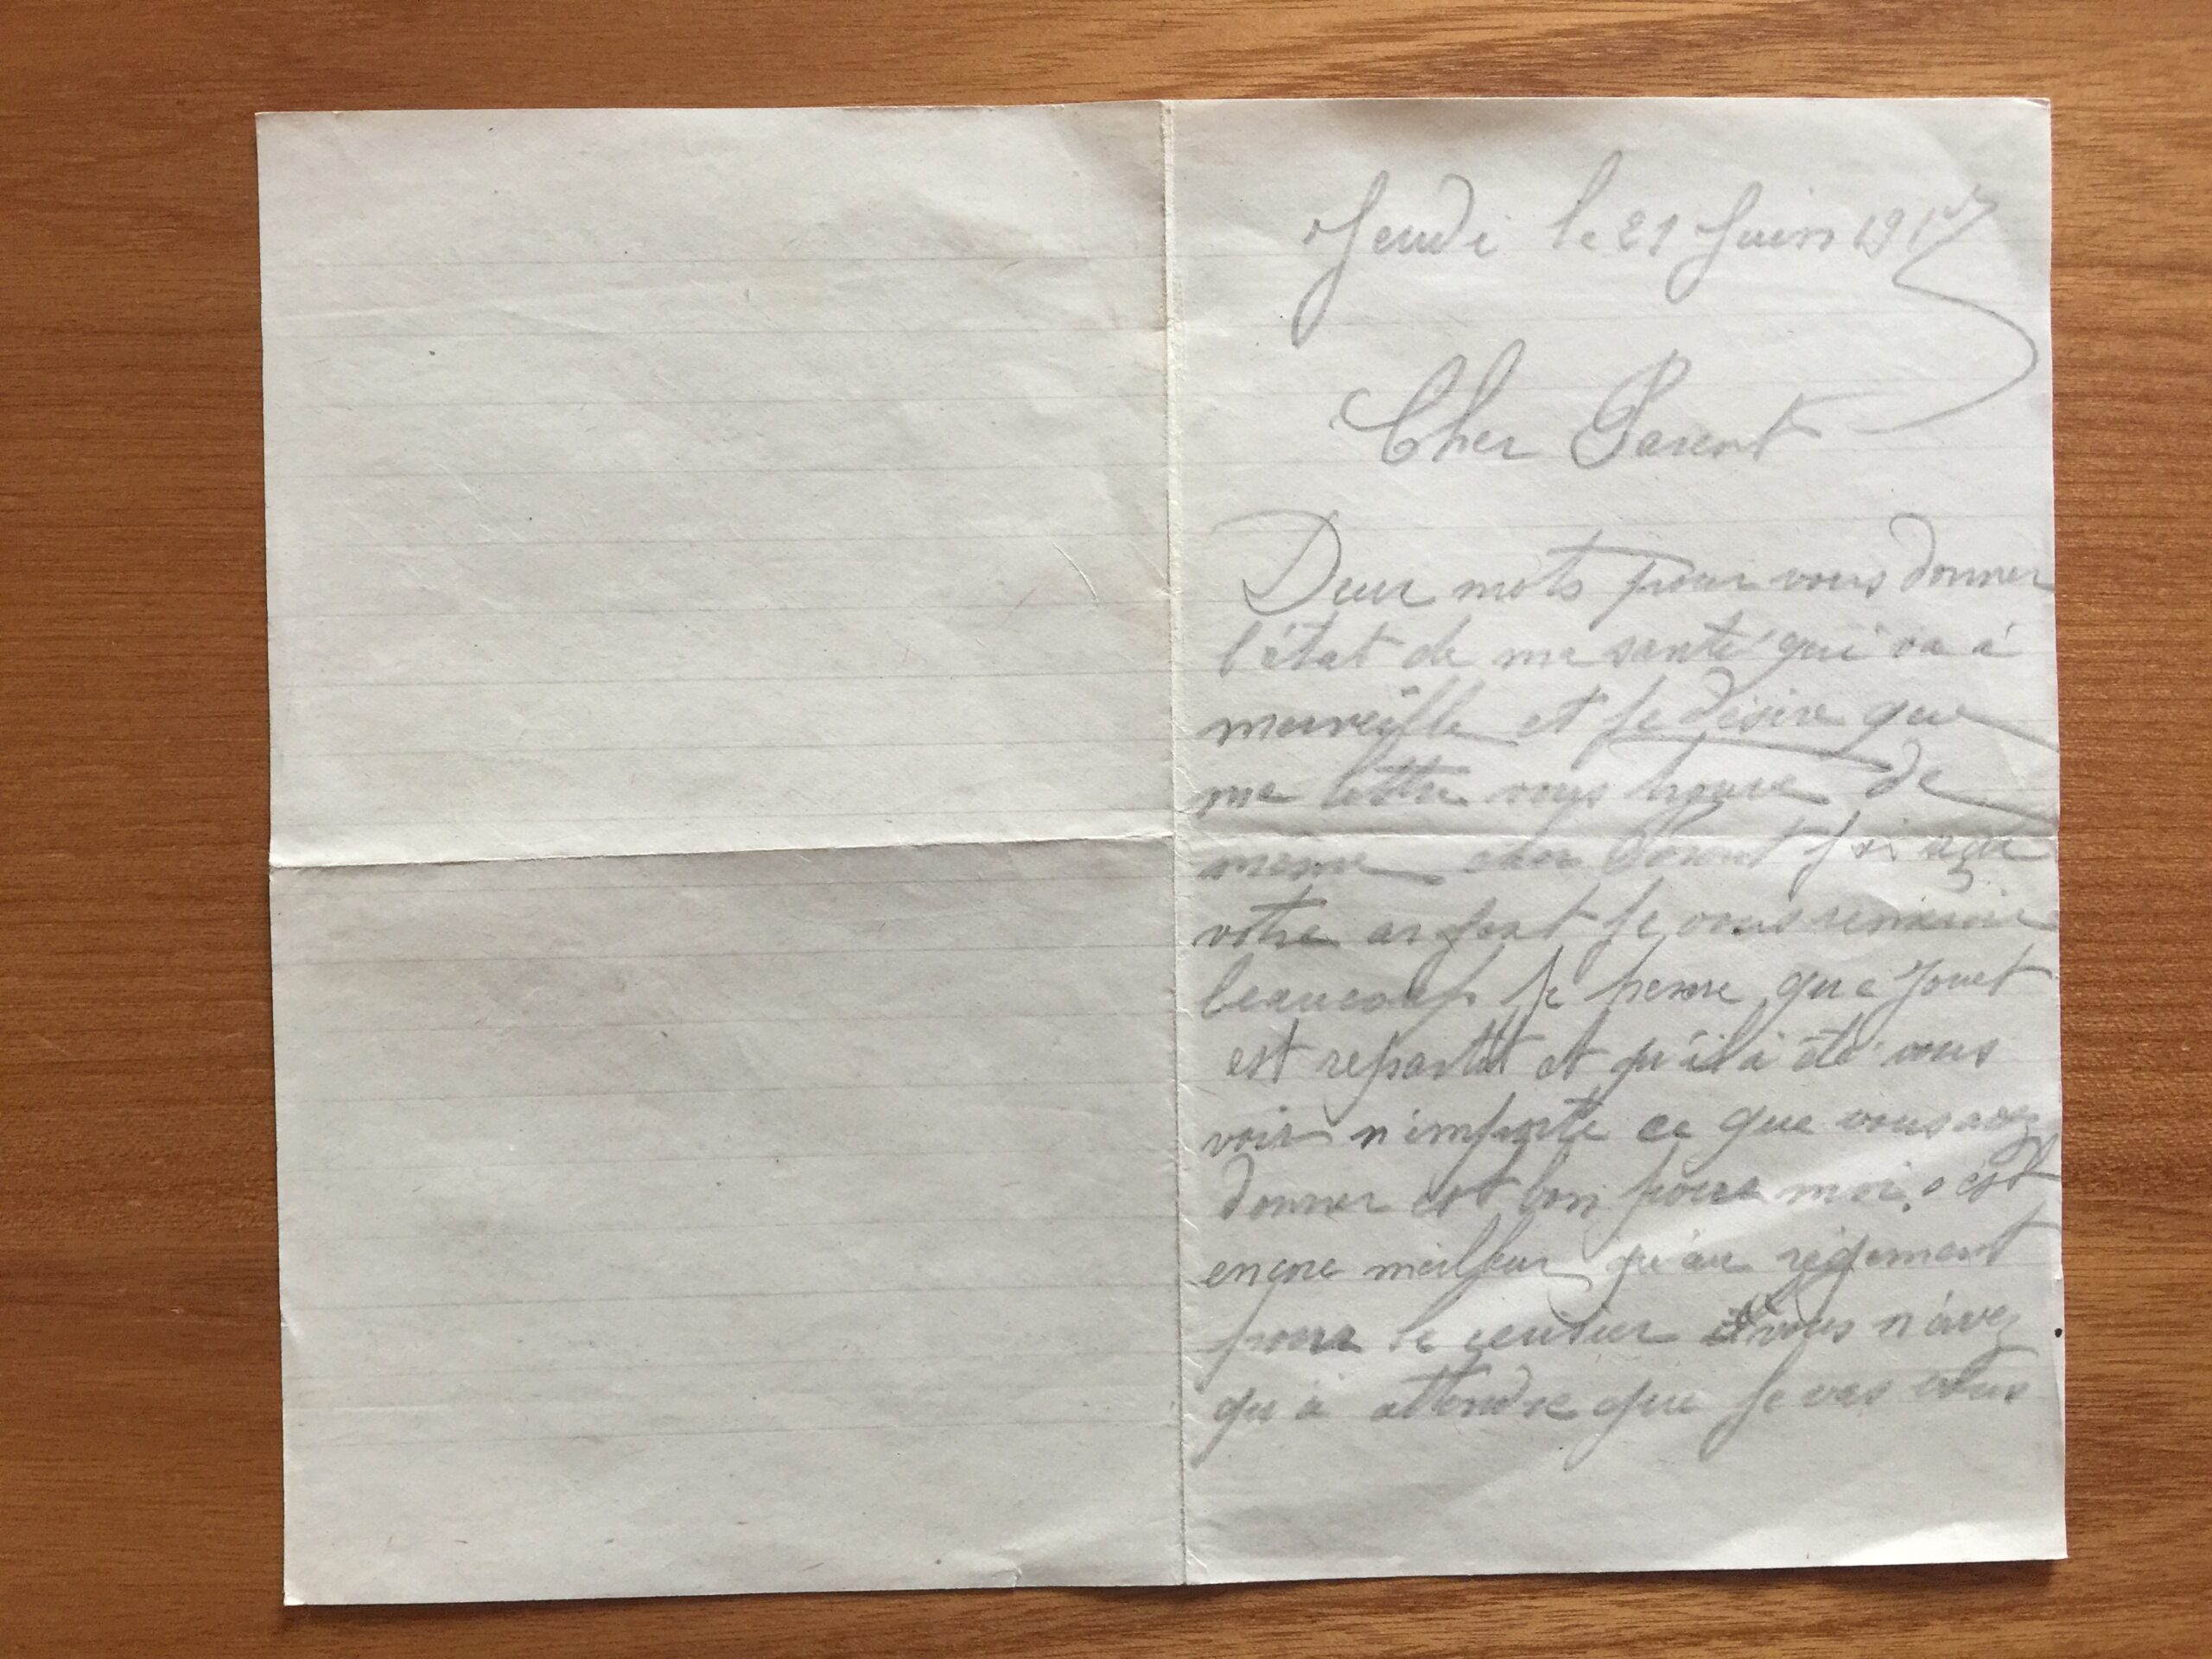 Jeudi le 21 Juin 1917
Cher Parent
Deux mots pour vous donner
l'état de ma santé qui va à
merveille et je désire que
ma lettre vous trouve de
meme cher Parent j'ai reçu
votre argent je vous remercie
beaucoup je pense que Jouet
est repartit et qu'il à été vous
voir n'importe ce que vous avez
donner est bon pour moi c'est
encore meilleur qu'au régiment
pour le vous n'avez
qu'à attendre que je vas vous